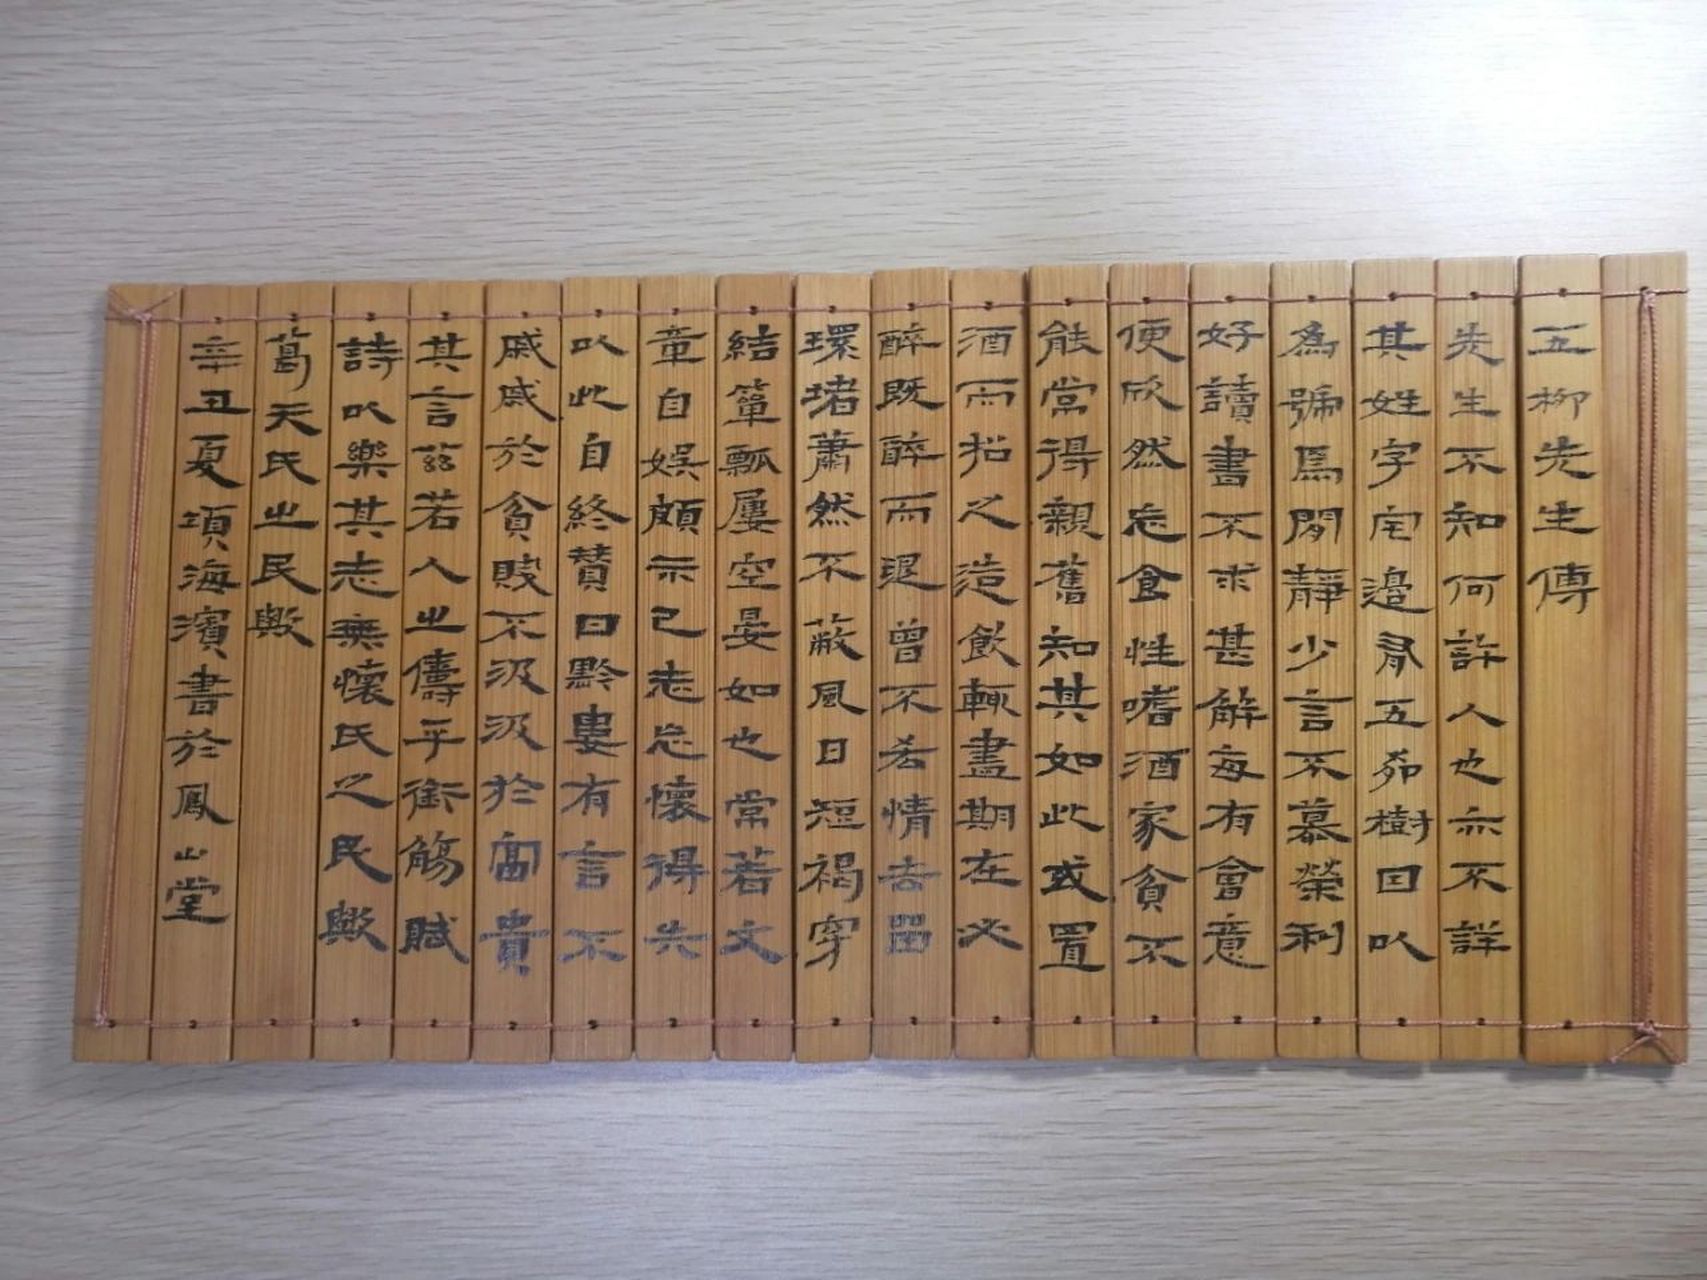 五柳先生傳
先生不知何許人也亦不詳
其姓字宅邊有五柳樹因以
為號焉閒靜少言不慕榮利
好讀書不求甚解每有會意
便欣然忘食性嗜酒家貧不
能常得親舊知其如此或置
酒而招之造飲輒盡期在必
醉既醉而退曾不吝情去留
環堵蕭然不蔽風日短褐穿
結簞瓢屢空晏如也常著文
章自娛頗示己志忘懷得失
以此自終贊曰黔婁有言不
戚戚於貧賤不汲汲於富貴
其言茲若人之儔乎銜觴賦
詩以樂其志無懷氏之民歟
葛天氏之民歟
辛丑夏項海濱書於鳳山堂